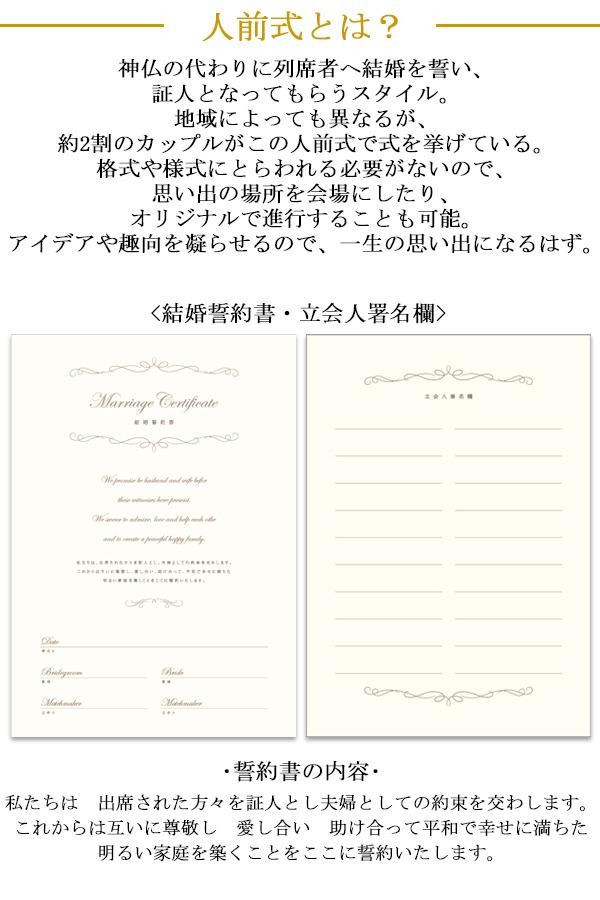 人前式とは?
神仏の代わりに列席者へ結婚を誓い、
証人となってもらうスタイル。
地域によっても異なるが、
約2割のカップルがこの人前式で式を挙げている。
格式や様式にとらわれる必要がないので、
思い出の場所を会場にしたり、
オリジナルで進行することも可能。
アイデアや趣向を凝らせるので、一生の思い出になるはず。
<結婚誓約書・立会人署名欄>
Marriage Certificate
結婚誓約書
We promise be husband and wife befor
these witnesses here present.
We swear to admire, love and help each othe
and to create a peaceful happy family.
私たちは、出席された方々を証人とし、夫婦としての約束を交わします。
これからは互いに尊敬し、愛し合い、助け合って、平和で幸せに満ちた
明るい家庭を築くことをここに誓約いたします。
Date
挙式日
Bridegroom Bride
新郎 新婦
Matchmaker Matchmaker
立会人 立会人
立会人署名欄
・誓約書の内容・
私たちは 出席された方々を証人とし夫婦としての約束を交わします。
これからは互いに尊敬し 愛し合い 助け合って平和で幸せに満ちた
明るい家庭を築くことをここに誓約いたします。